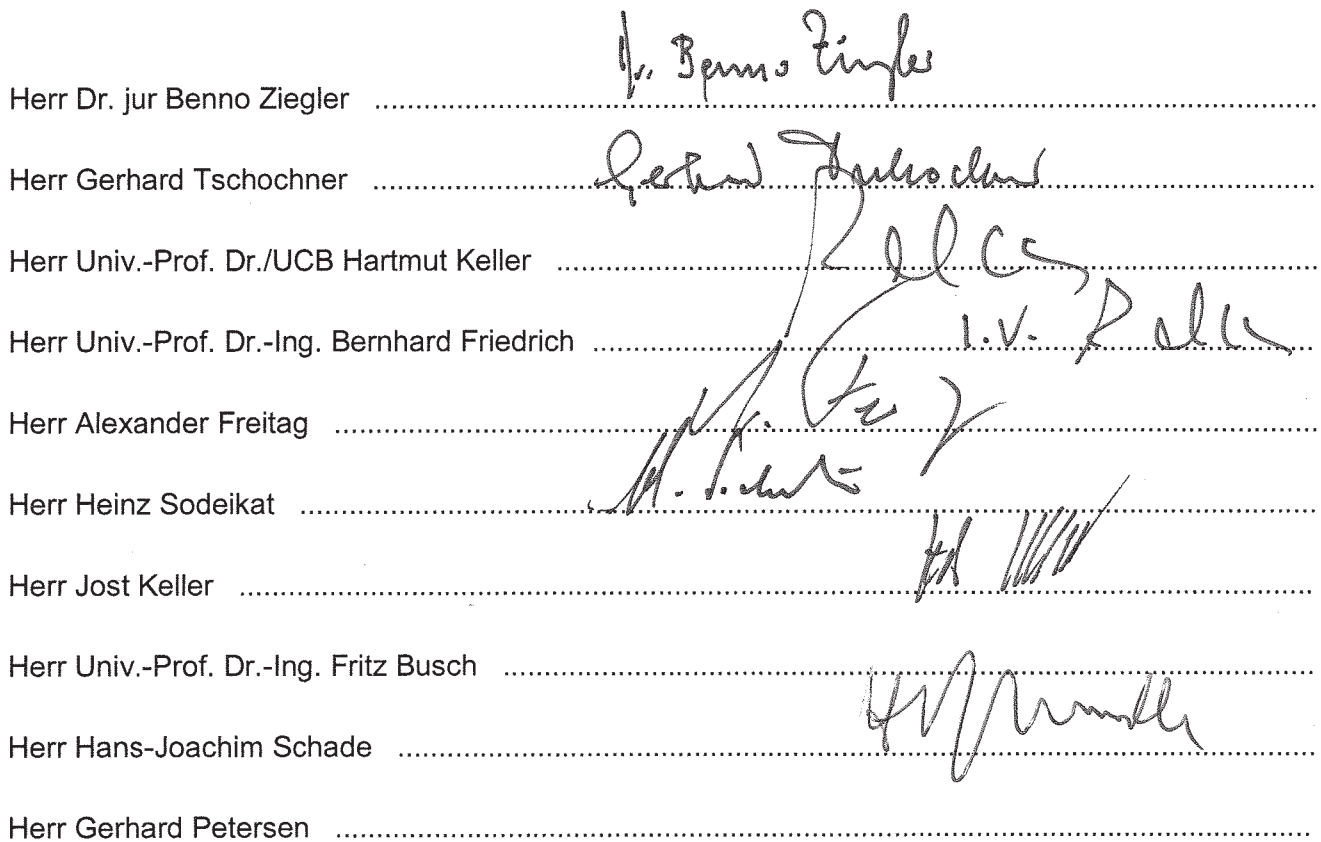 Dr. Benno Ziegler
Herr Dr. jur Benno Ziegler ........................................................................
Gerhard Tschochner
Herr Gerhard Tschochner ........................................................................
Herr Univ.-Prof. Dr./UCB Hartmut Keller ........................................................................
Herr Univ.-Prof. Dr.-Ing. Bernhard Friedrich ........................................................................ i.V.
Herr Alexander Freitag ........................................................................
Herr Heinz Sodeikat ........................................................................
Herr Jost Keller ........................................................................
Herr Univ.-Prof. Dr.-Ing. Fritz Busch ........................................................................
Herr Hans-Joachim Schade ........................................................................
Herr Gerhard Petersen ........................................................................